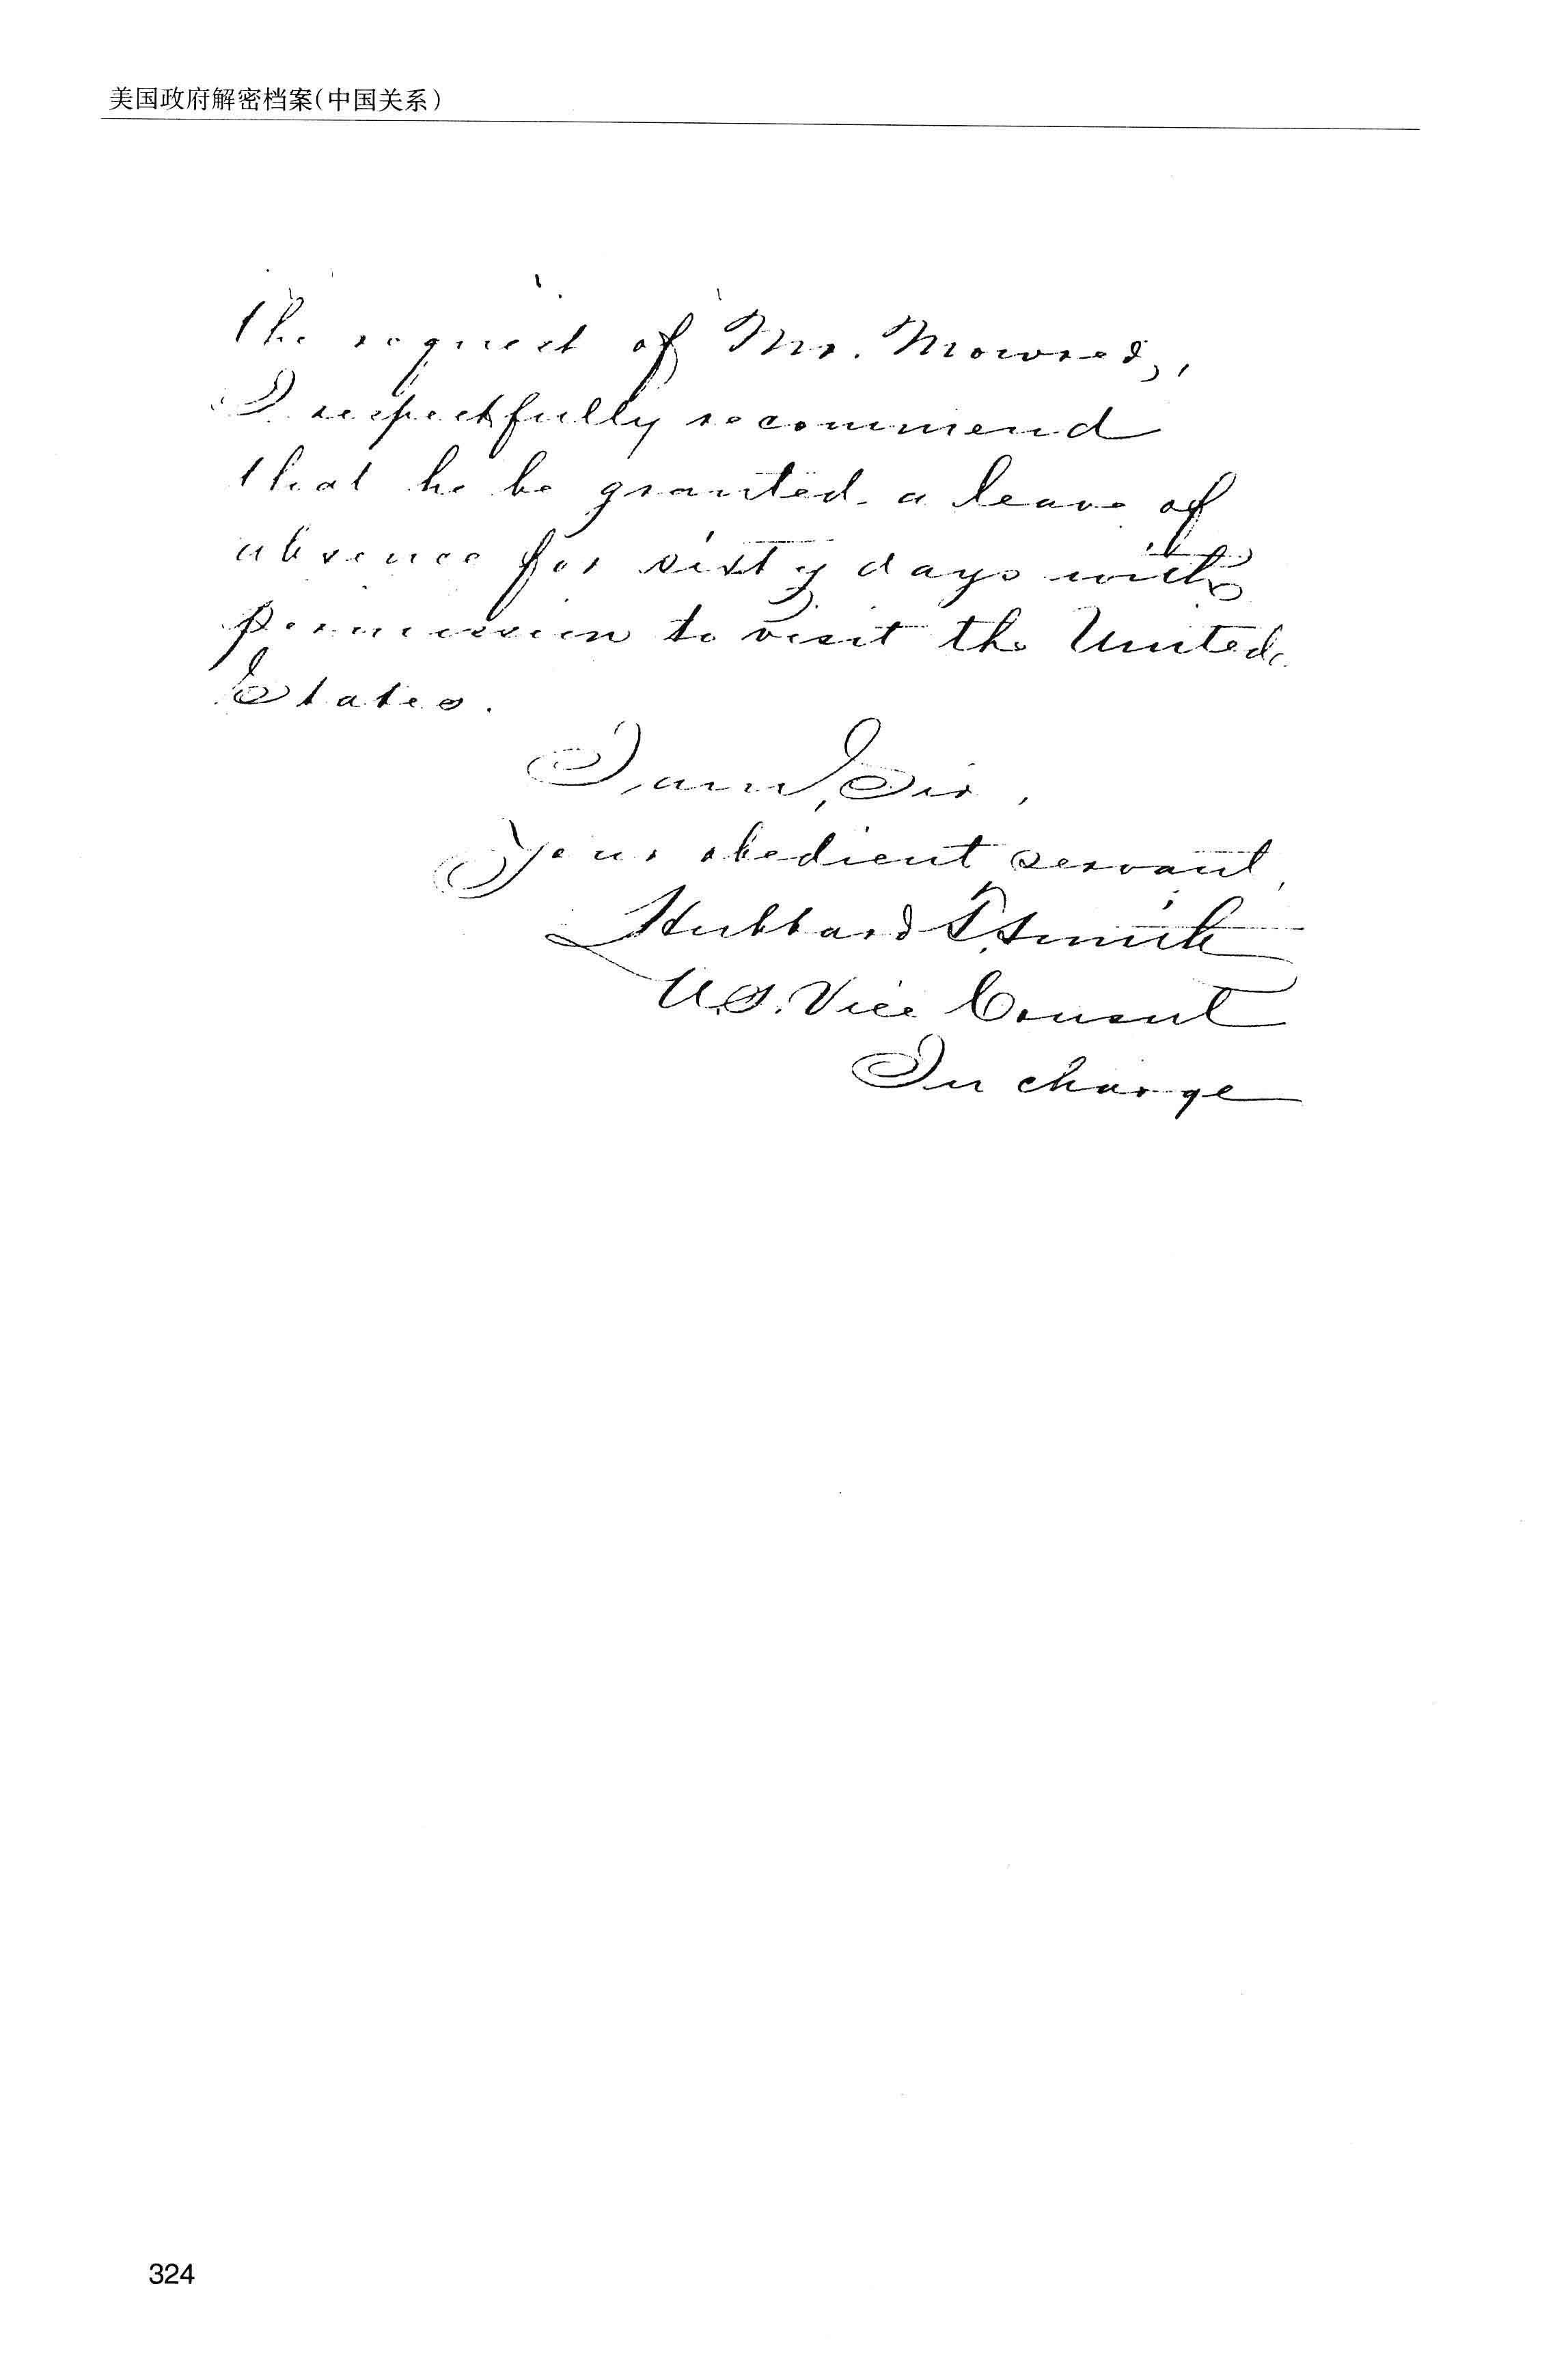 美国政府解密档案(中国关系)
the request of Mr. Mowrey,
I respectfully recommend
that he be granted a leave of
absence for sixty days with
permission to visit the United
States.
I am, Sir,
Your obedient servant,
Hubbard T. Smith
U.S. Vice Consul
In charge
324